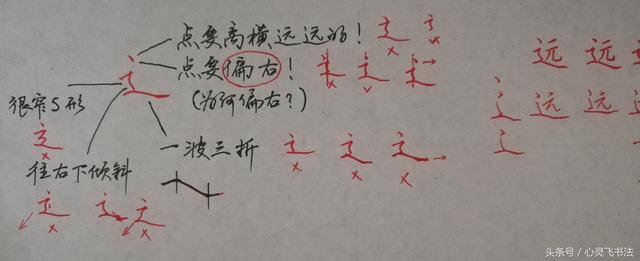 点要高横远远的！
点要偏右！
（为何偏右？）
很窄S形
往右下倾斜
一波三折
远 远
远 远
头条号／心灵飞书法